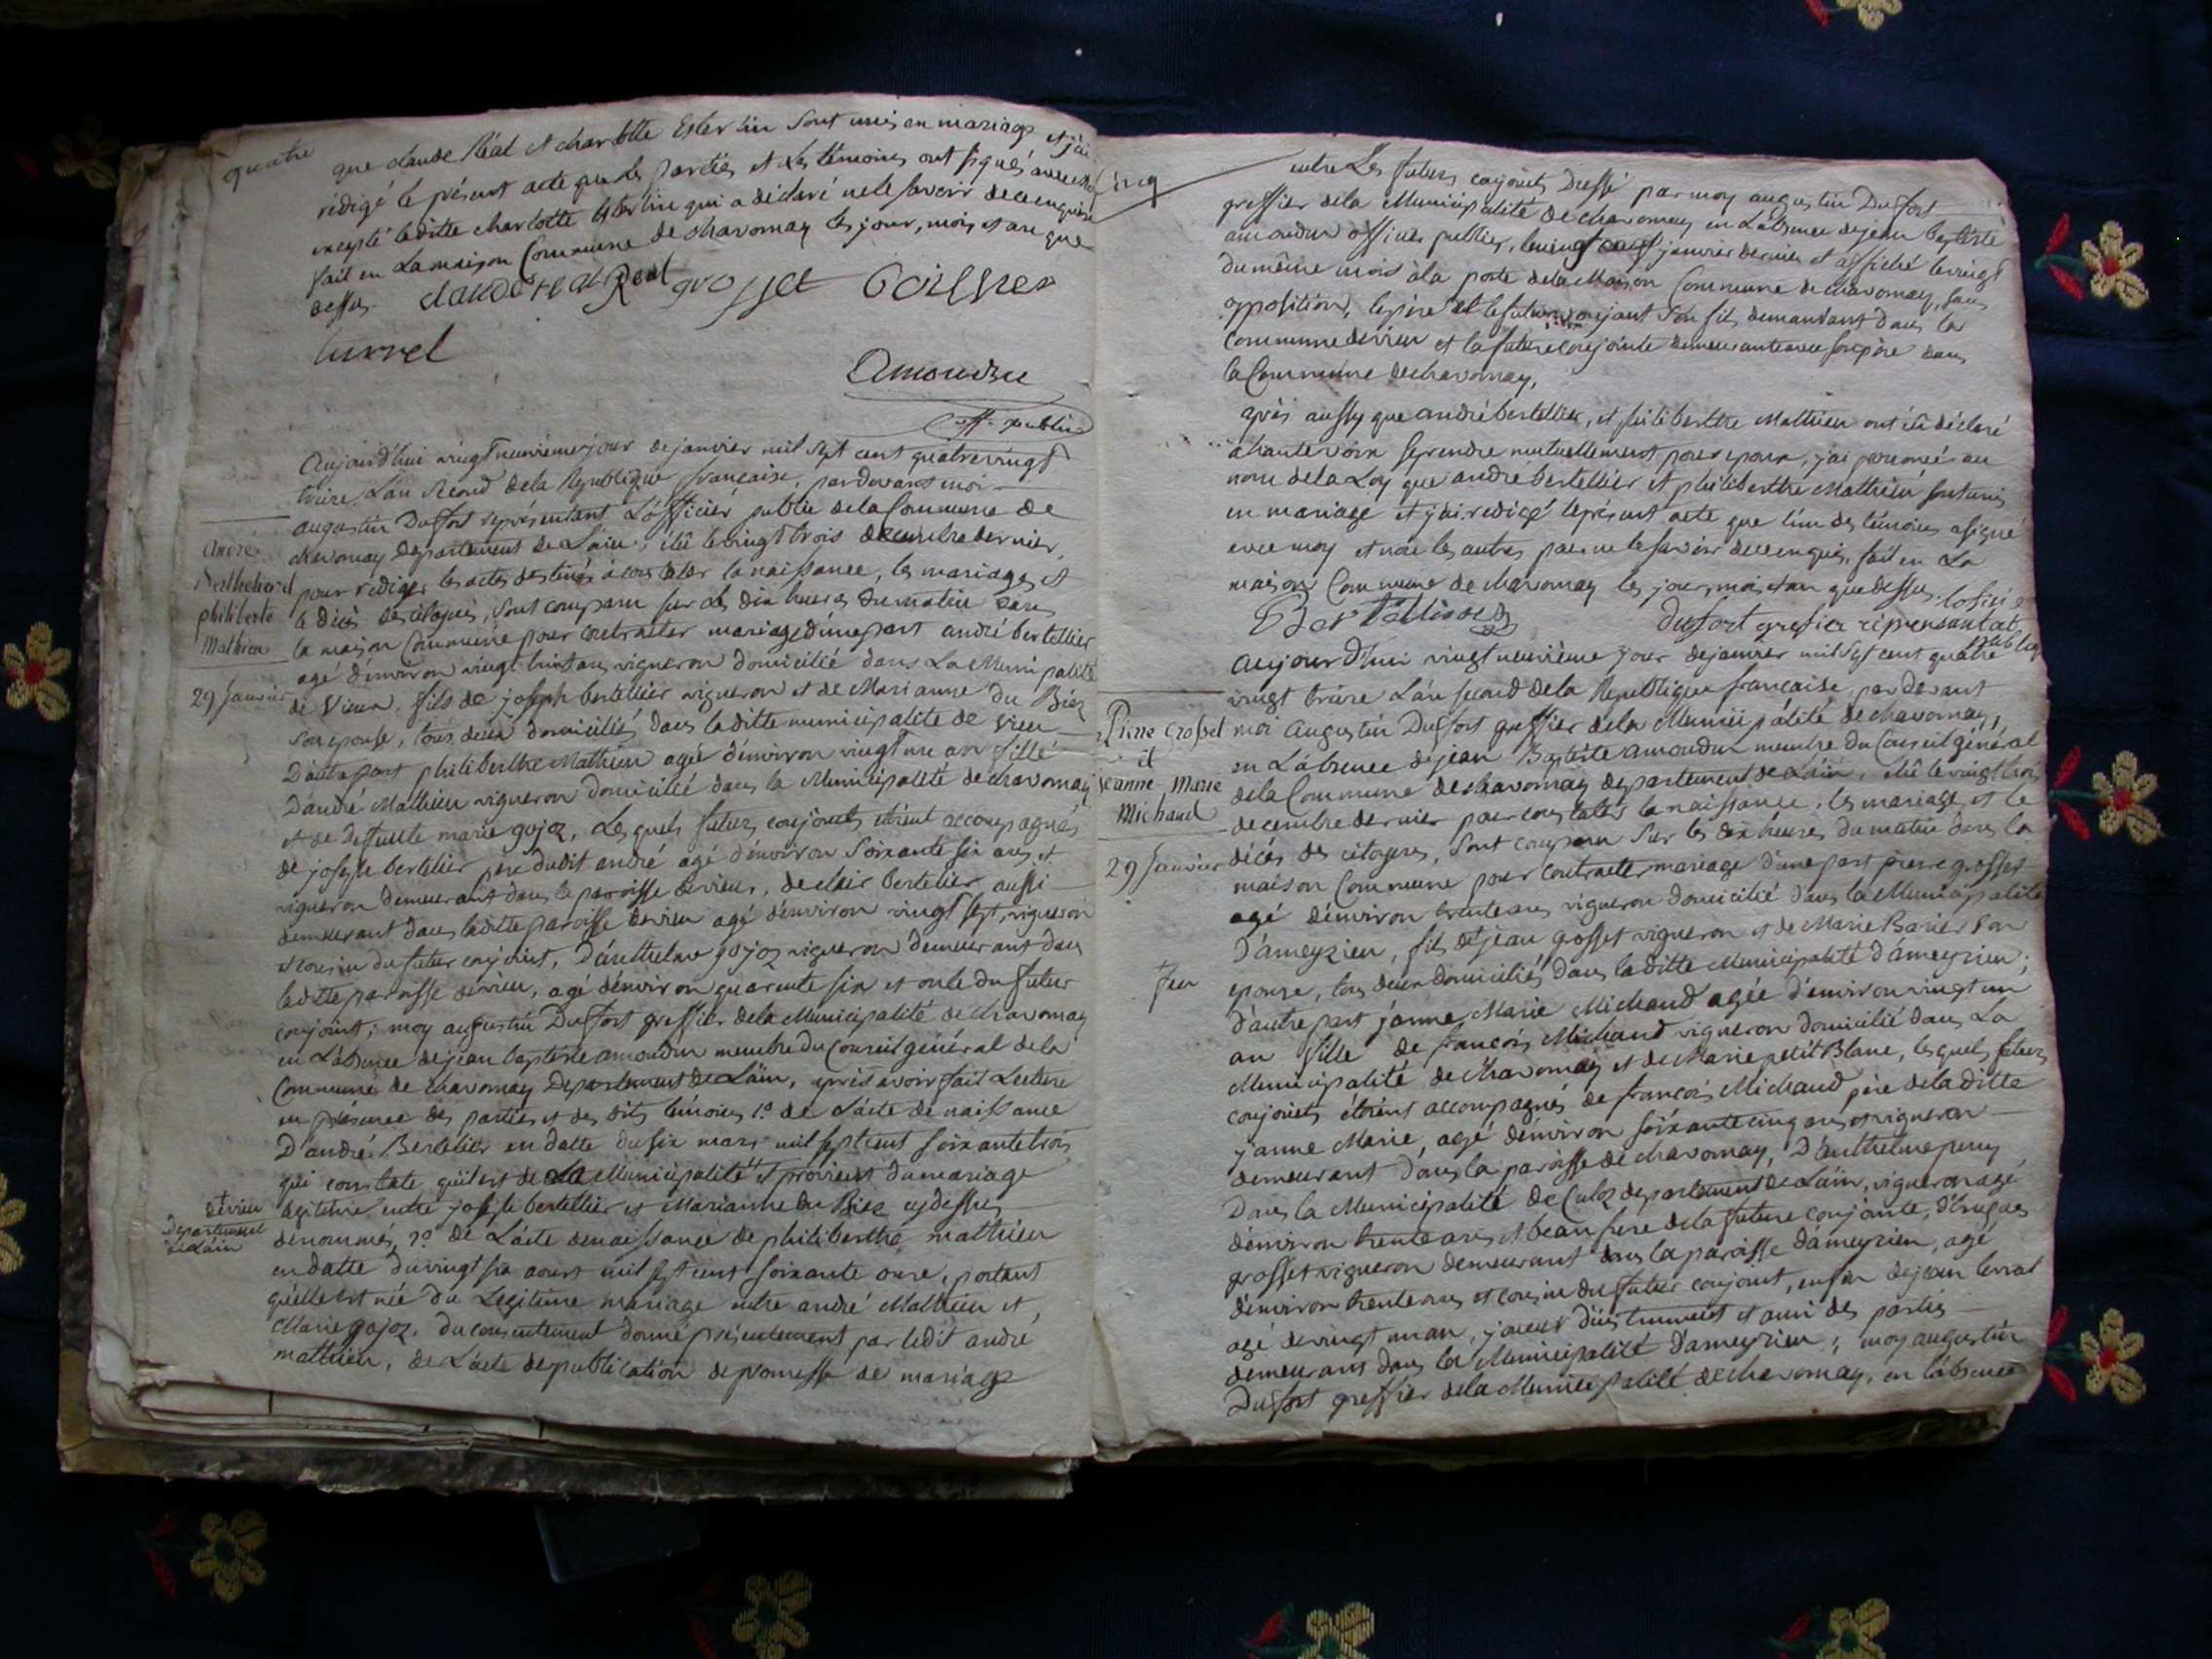 quatre
que claude Réal et charlotte Esterlin sont unis en mariage et j'ai
rédigé le présent acte que les parties et les témoins ont signés avec moi
excepté laditte charlotte Esterlin qui a déclaré ne le savoir de ce enquise
fait en La maison Commune de chavornay les jour, mois et an que
dessus. claude real Real grosset
turrel
Amoudru
off. public
Aujourd'hui vingt neuvieme jour de janvier mil sept cent quatre vingt
treize L'an second de la Republique française, pardevant moi
augustin Dufort représentant L'officier public de la Commune de
chavornay Departement de L'ain, élû le vingt trois decembre dernier,
pour rédiger les actes destinés à constater la naissance, les mariages et
le décès des citoyens, sont comparu sur les dix heures du matin dans
la maison Commune pour contracter mariage d'une part andré bertellier
agé d'environ vingt huit ans, vigneron domicilié dans La Municipalité
de Vieu, fils de joseph bertellier vigneron et de Marianne du Biez
son epouse, tous deux domiciliés dans laditte municipalité de Vieu
D'autre part philiberthe Mathieu agée d'environ vingt un an fille
D'andré Mathieu vigneron domicilié dans la Municipalité de chavornay
et de Defunte marie gojoz, Lesquels futurs conjoints étoient accompagnés
de joseph bertelier père dudit andré agé d'environ soixante six ans, et
vigneron demeurant dans la paroisse de vieu, de clair bertelier aussi
demeurant dans laditte paroisse de vieu agé d'environ vingt sept, vigneron
et cousin du futur conjoint, D'anthelme gojoz vigneron demeurant dans
laditte paroisse de vieu, agé d'environ quarente six et oncle du futur
conjoint; moy augustin Dufort greffier de la Municipalité de chavornay
en L'absence de jean baptiste amoudru membre du Conseil général de la
Commune de chavornay Departement de L'ain, après avoir fait Lecture
en présence des parties et des dits témoins 1° de L'acte de naissance
D'andré Bertelier en datte du six mars mil sept cent soixante trois
qui constate qu'il est de la Municipalité et provient du mariage
légitime entre joseph bertellier et Marianne du Biez cy dessus
dénommés, 2° de L'acte de naissance de philiberthe mathieu
en datte du vingt six aoust mil sept cent soixante onze, portant
qu'elle est née du Legitime mariage entre andré Mathieu et
Marie gojoz. du consentement donné présentement par ledit andré
mathieu, de L'acte de publication de promesse de mariage
André
Berthelierd
philiberte
Mathieu
29 Janvier
de vieu
Departement
de L'ain
cinq
entre Les futurs conjoints Dressé par moy augustin Dufort
greffier de la Municipalité de chavornay en L'absence de jean baptiste
amoudru officier public, le vingt janvier dernier et affiché le vingt
du même mois à la porte de la Maison Commune de chavornay, sans
opposition, le père et le futur conjoint son fils demeurant dans la
commune de vieu et la future conjointe demeurante avec son père dans
la Commune de chavornay,
après aussy que andré bertellier, et philiberthe Mathieu ont eû déclaré
à haute voix se prendre mutuellement pour epoux, j'ai prononcé au
nom de la Loy que andré bertellier et philiberthe Mathieu sont unis
en mariage et j'ai redigé le présent acte que l'un des témoins a signé
avec moy et non les autres pour ne le savoir de ce enquis, fait en La
maison Commune de chavornay les jour, mois et an que dessus.
Dufort grefier represantant
publiq
Aujourd'hui vingt neuvième jour de janvier mil sept cent quatre
vingt treize L'an second de la Republique française, pardevant
moi augustin Dufort greffier de la Municipalité de chavornay,
en L'absence de jean Baptiste amoudru membre du Conseil général
de la Commune de chavornay departement de L'ain, élû le vingt trois
decembre dernier pour constater la naissance, les mariages et le
décès des citoyens, sont comparu sur les dix heures du matin dans la
maison Commune pour contracter mariage d'une part pierre grosset
agé d'environ trente ans vigneron domicilié dans la Municipalité
D'ameyzieu, fils de jean grosset vigneron et de Marie Barier son
epouse, tous deux domiciliés dans laditte Municipalité d'ameyzieu;
d'autre part janne Marie Michaud agée d'environ vingt un
an fille de françois Michaud vigneron domicilié dans La
Municipalité de chavornay et de Marie petit Blanc, lesquels futurs
conjoints étoient accompagnés de françois Michaud père de laditte
janne Marie, agé d'environ soixante cinq ans, et vigneron
demeurant dans la paroisse de chavornay, D'anthelme
Dans la Municipalité de Culoz departement de L'ain, vigneron agé
d'environ trente ans et beau frere de la future conjointe,
grosset vigneron demeurant dans la paroisse d'ameyzieu, agé
d'environ trente ans et cousin du futur conjoint, enfin de jean
agé de vingt un an, joueur d'instrument et ami des parties
demeurant dans la Municipalité d'ameyzieu; moy augustin
Dufort greffier de la Municipalité de chavornay, en l'absence
Pierre Grosset
et
jeanne Marie
Michaud
29 Janvier